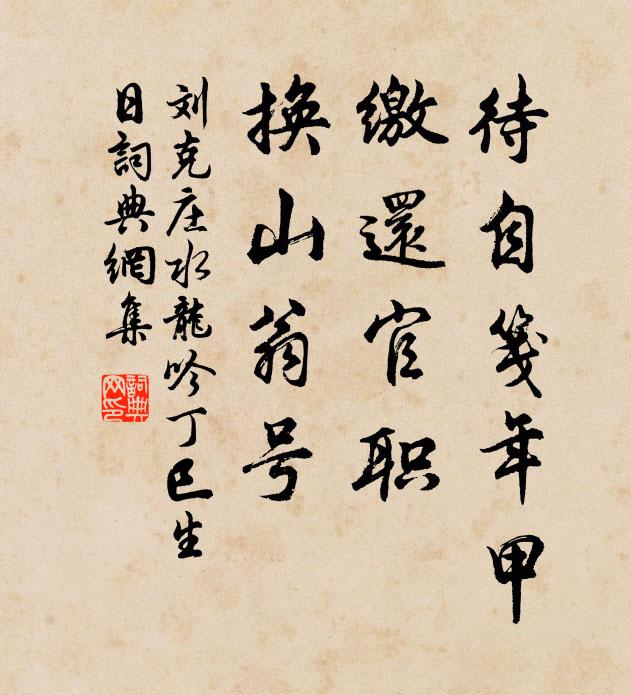 待自笺年甲
缴還官职
换山翁号
刘克庄水龍吟丁巳生
日詞典網集
詞典网印